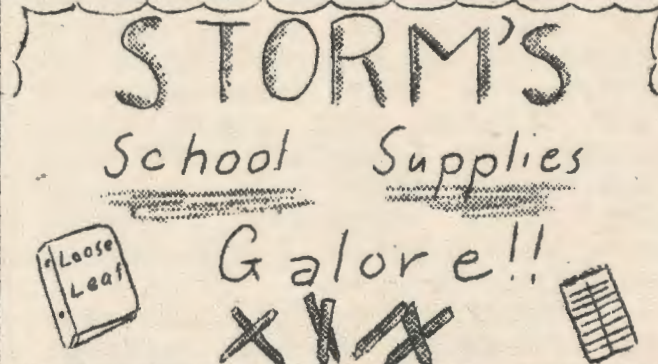 STORM'S
School Supplies
Galore!!
Loose
Leaf